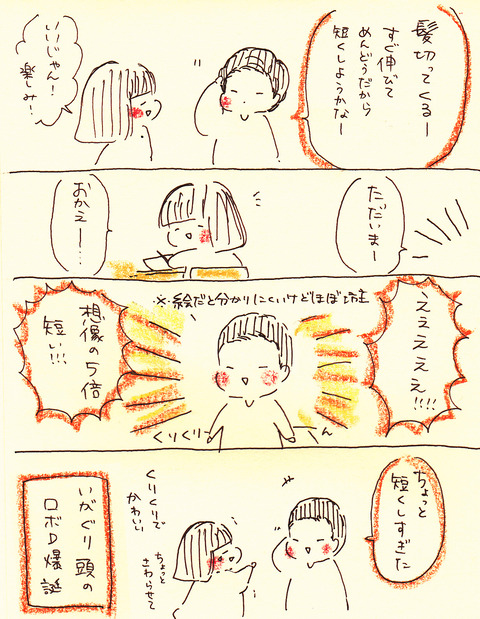 髪切ってくるー
すぐ伸びて
めんどうだから
短くしようかなー
いいじゃん!
楽しみ!
ただいまー
おかえー…
※絵だと分かりにくいけどほぼ坊主
えええええ!!!!
想像の5倍
短い!!!
くりくりーん
ちょっと
短くしすぎた
くりくりで
かわいい
ちょっと
さわらせて
いがぐり頭の
ロボD爆誕